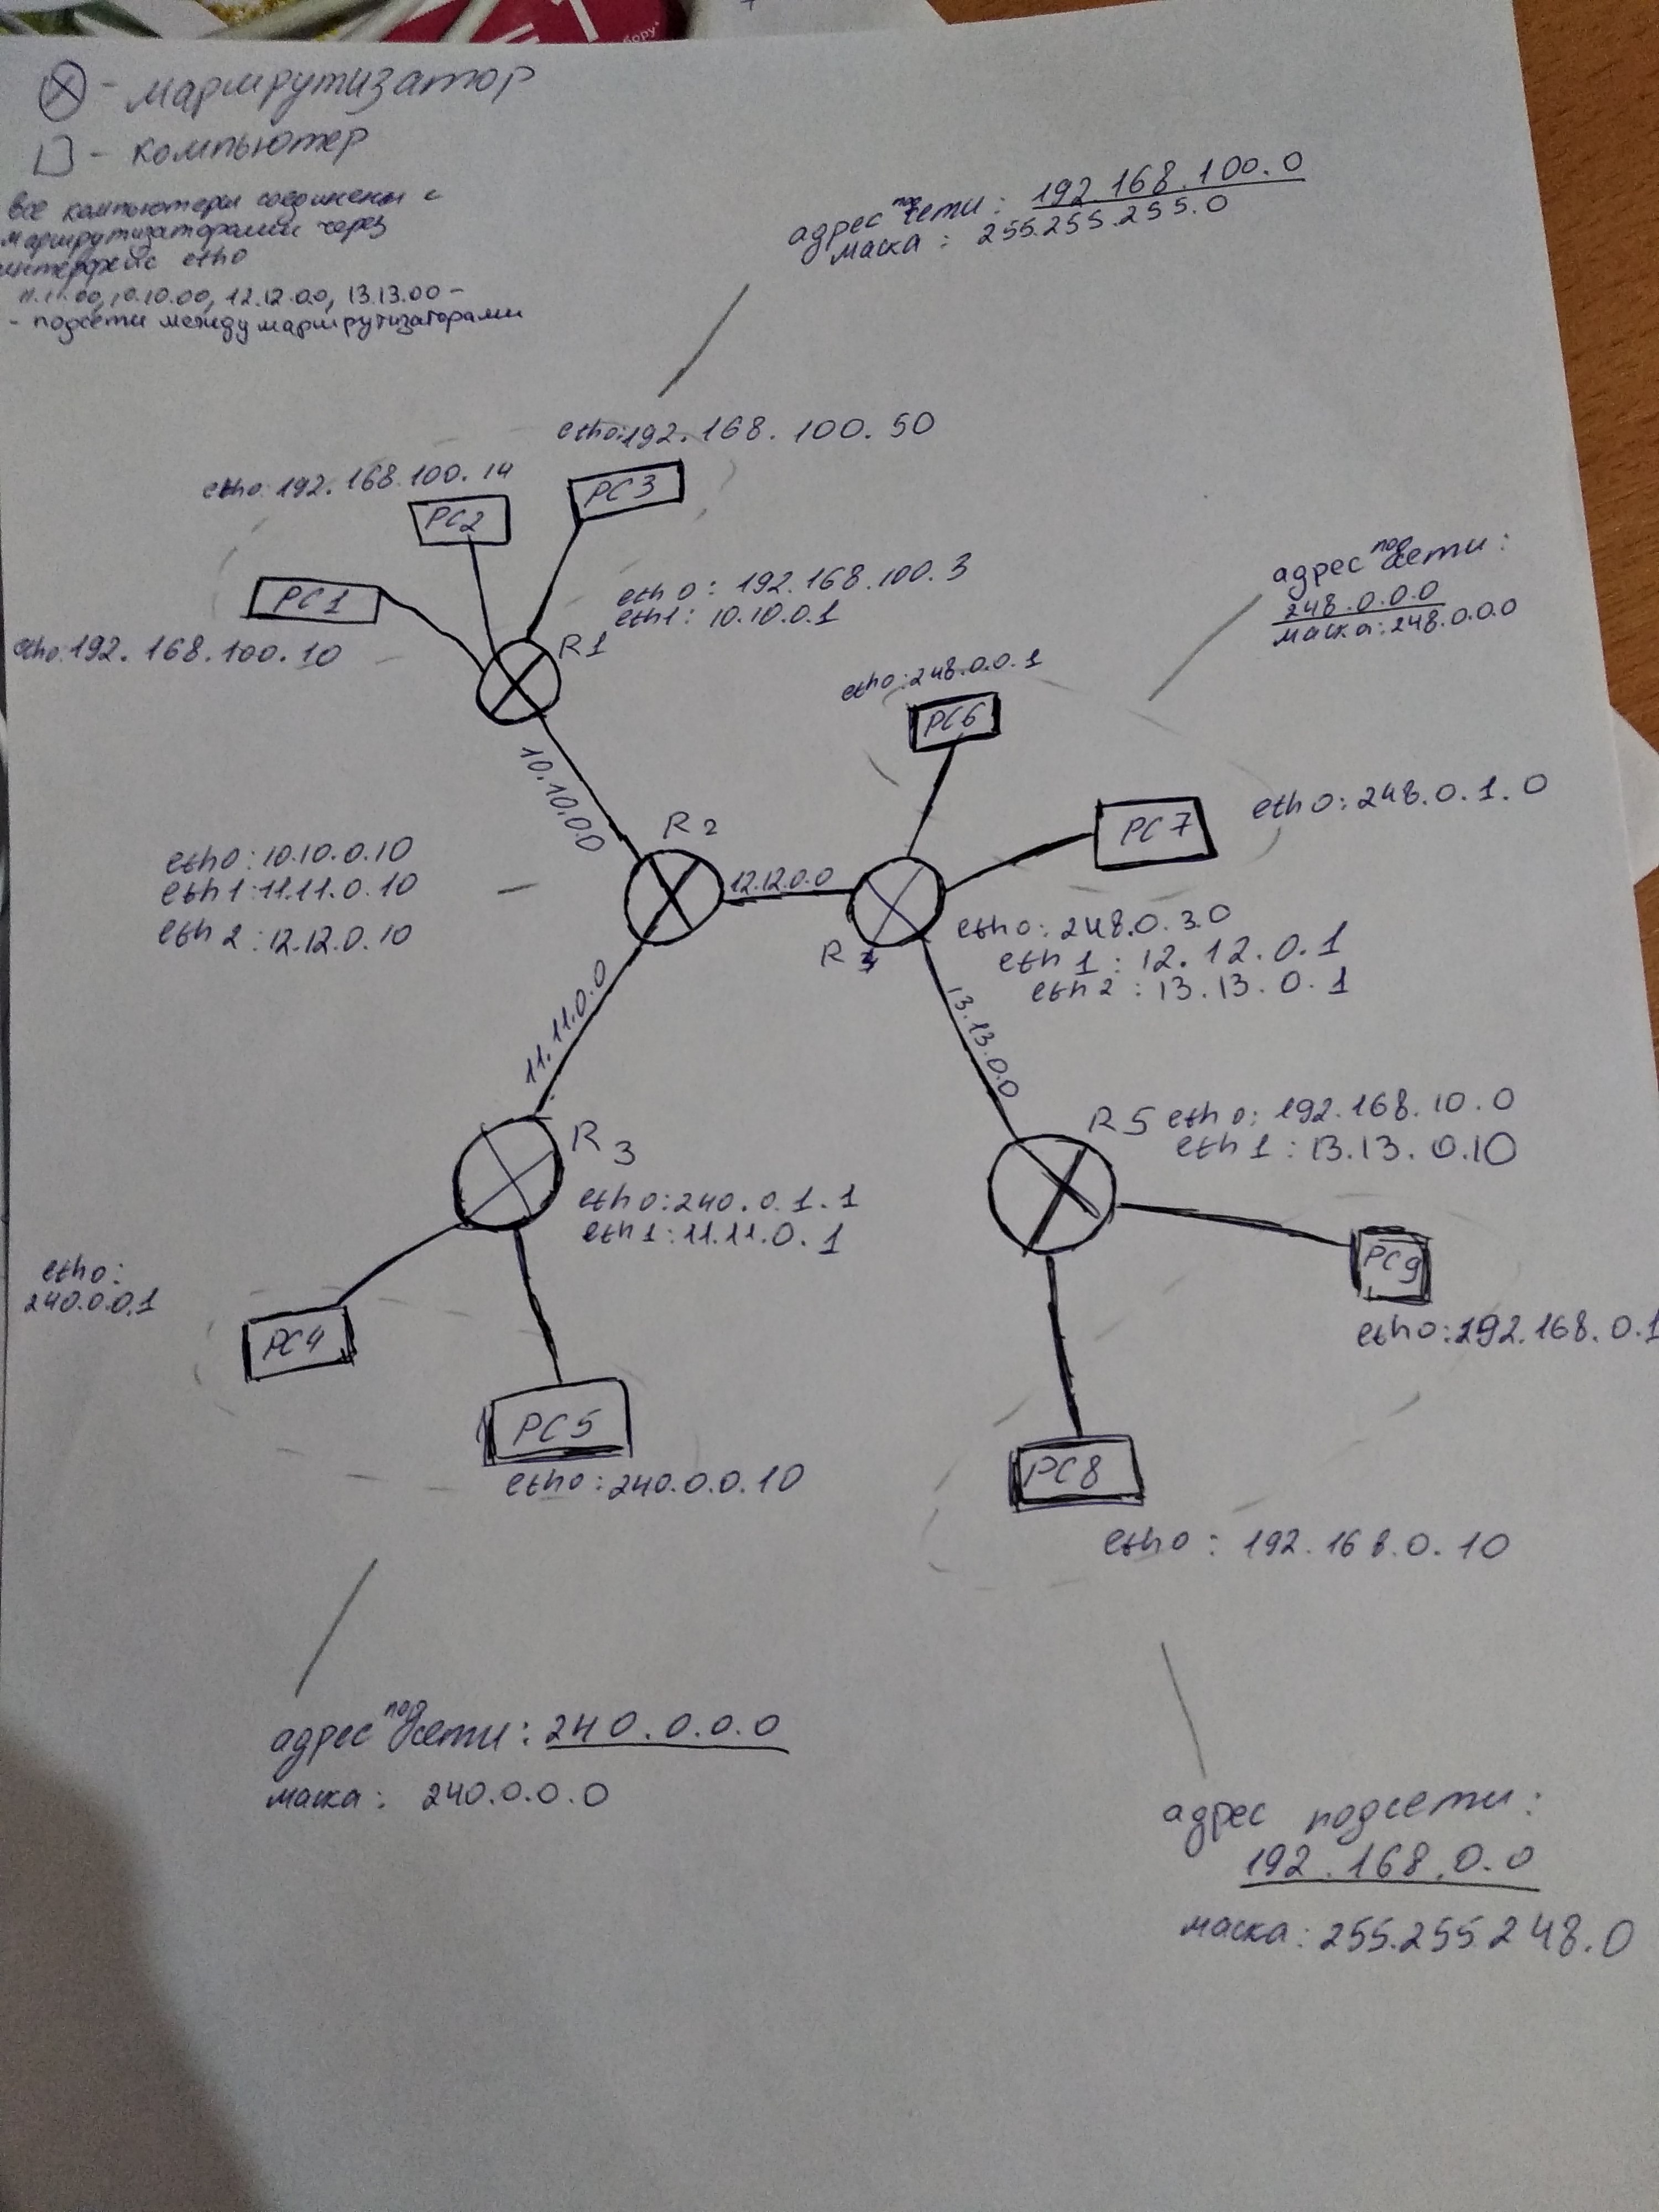 бору.
- маршрутизатор
- компьютер
все компьютеры соединены с
маршрутизаторами через
интерфейс eth0
11.11.00, 10.10.00, 12.12.0.0, 13.13.00 -
- подсети между маршрутизаторами
адрес подсети: 192.168.100.0
маска: 255.255.255.0
eth0:192.168.100.50
eth0:192.168.100.14
PC3
PC2
PC1
eth0:192.168.100.10
eth0: 192.168.100.3
eth1: 10.10.0.1
R1
адрес подсети:
248.0.0.0
маска:248.0.0.0
eth0:248.0.0.1
PC6
10.10.0.0
eth0:248.0.1.0
PC7
R2
eth0:10.10.0.10
eth1:11.11.0.10
eth2:12.12.0.10
12.12.0.0
eth0:248.0.3.0
eth1:12.12.0.1
eth2:13.13.0.1
R
11.11.0.0
13.13.0.0
R3
eth0:240.0.1.1
eth1:11.11.0.1
R5 eth0: 192.168.10.0
eth1:13.13.0.10
eth0:
240.0.0.1
PC4
PC5
eth0:240.0.0.10
PC9
eth0:192.168.0.1
PC8
eth0: 192.168.0.10
адрес подсети: 240.0.0.0
маска: 240.0.0.0
адрес подсети:
192.168.0.0
маска: 255.255.248.0